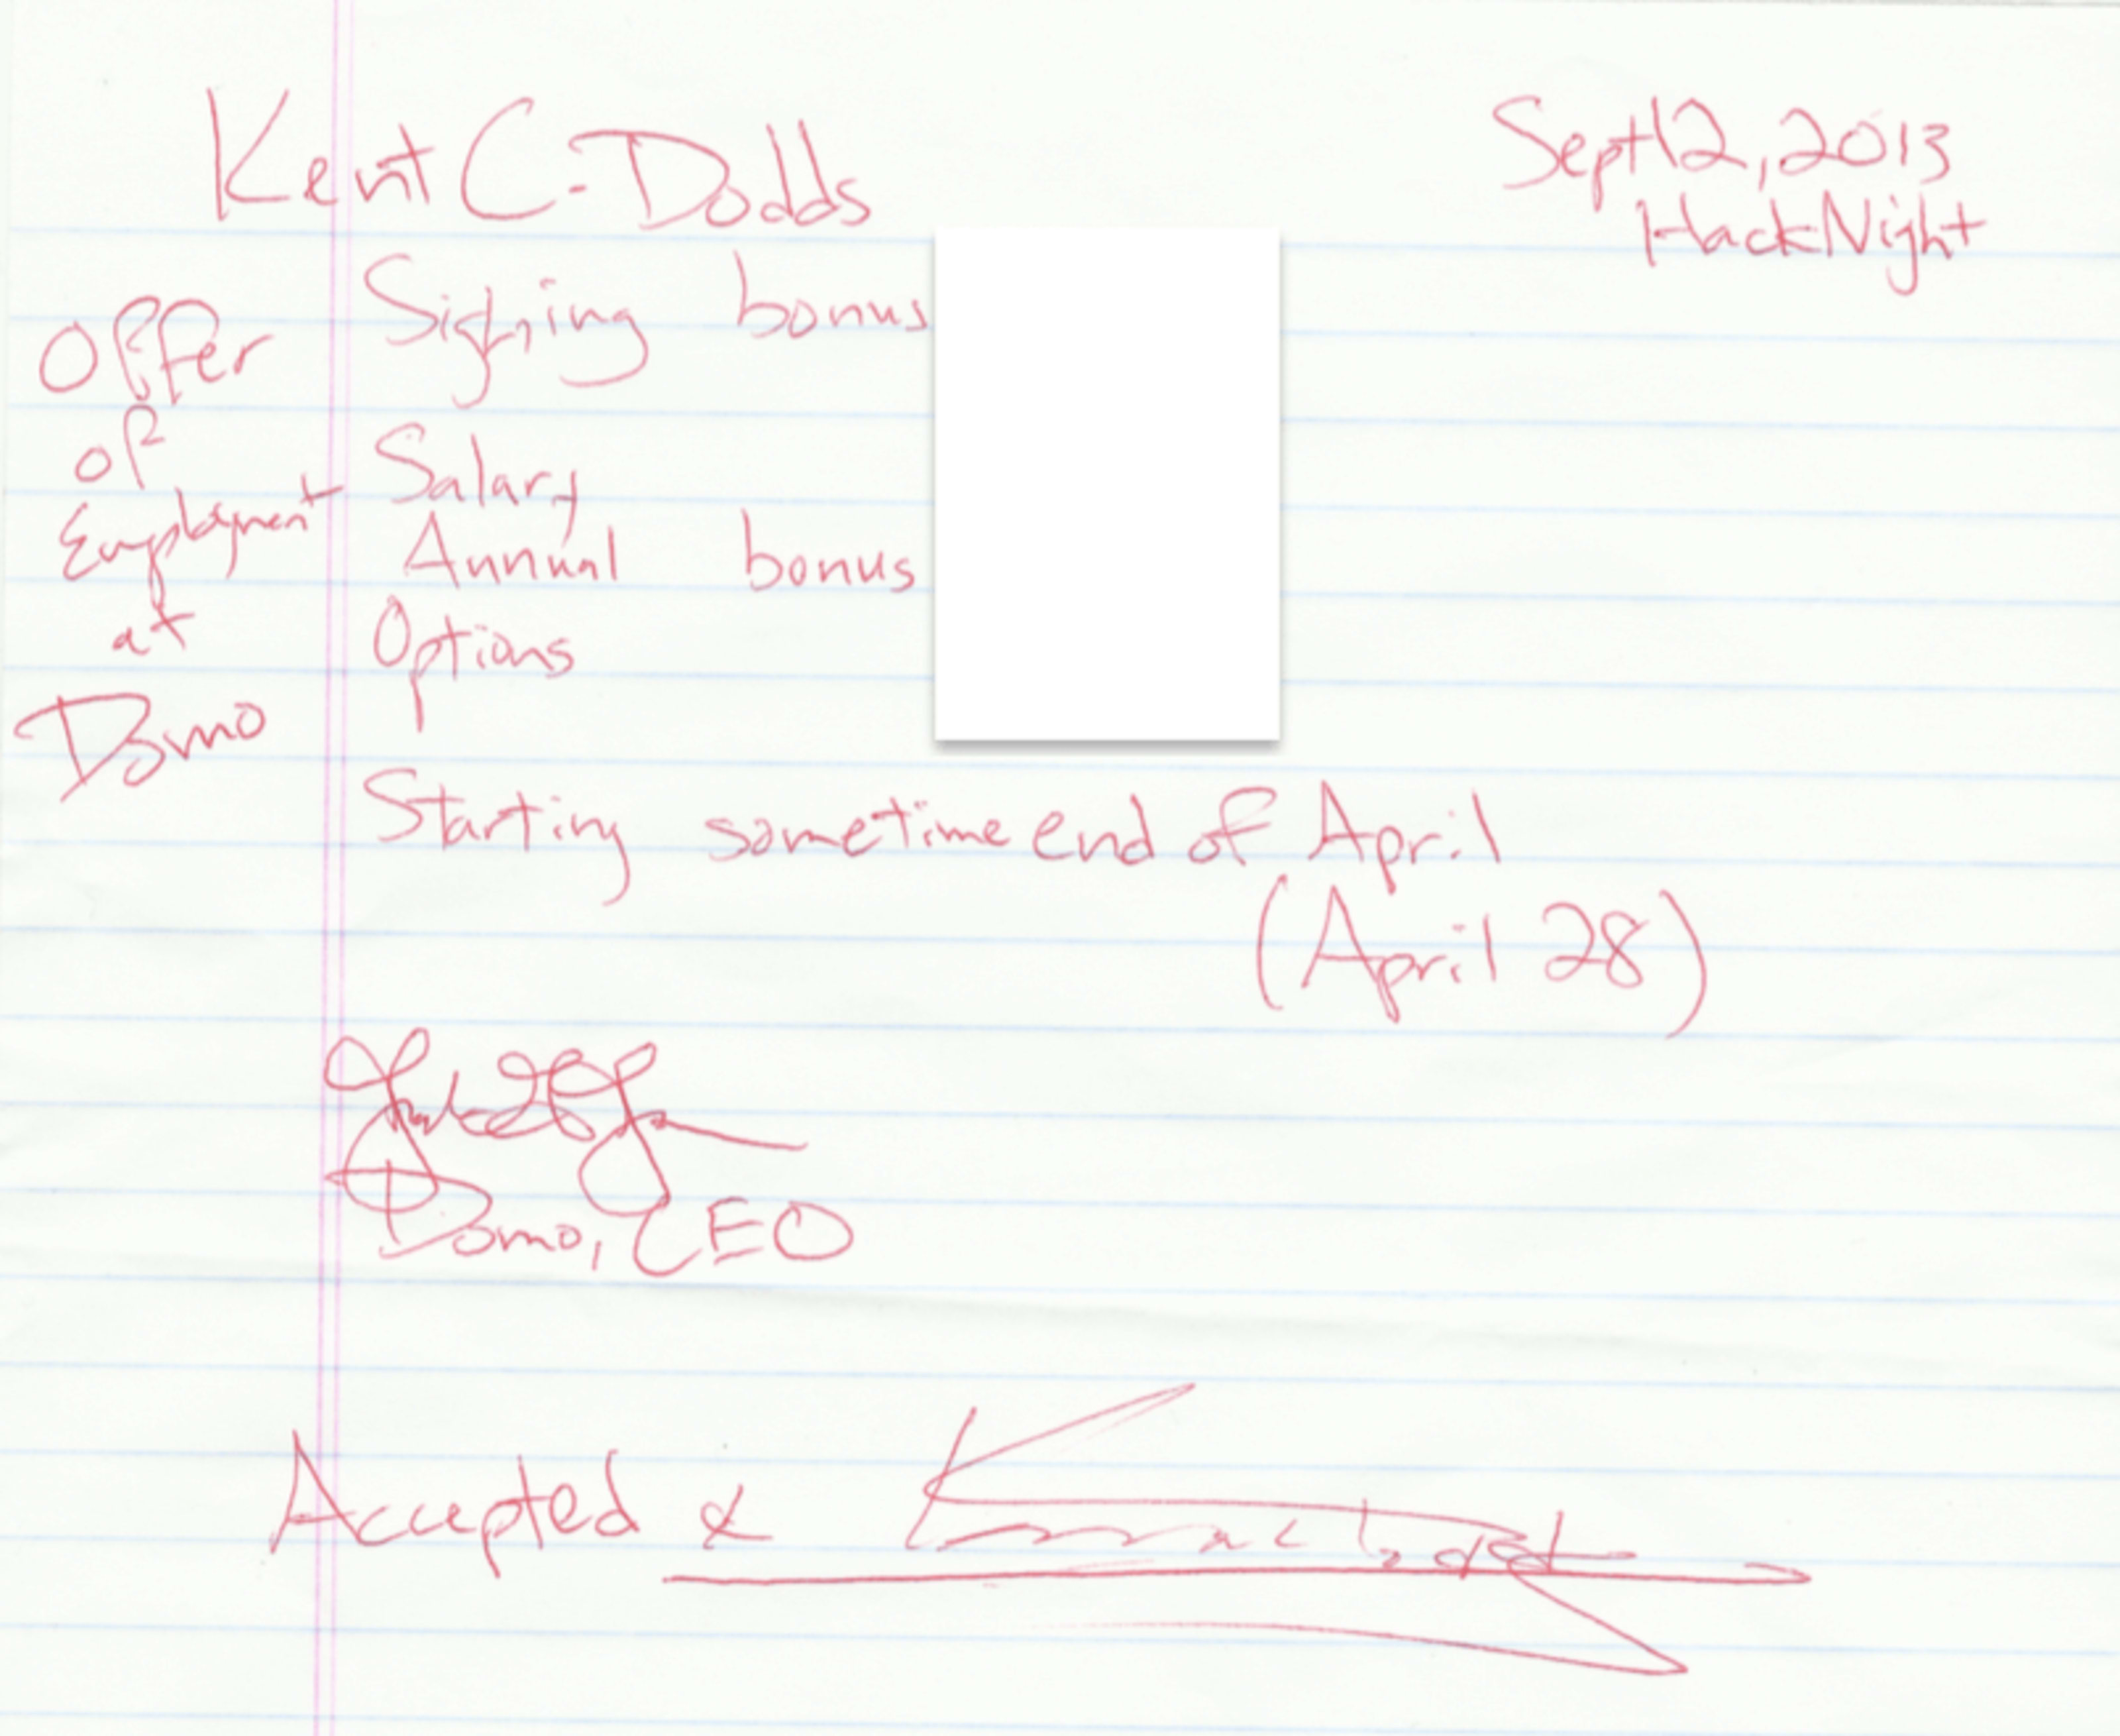 Kent C. Dodds
Sept 12, 2013
HackNight
Offer
of
Employment
at
Domo
Signing bonus
Salary
Annual bonus
Options
Starting sometime end of April
(April 28)
Domo, CEO
Accepted x